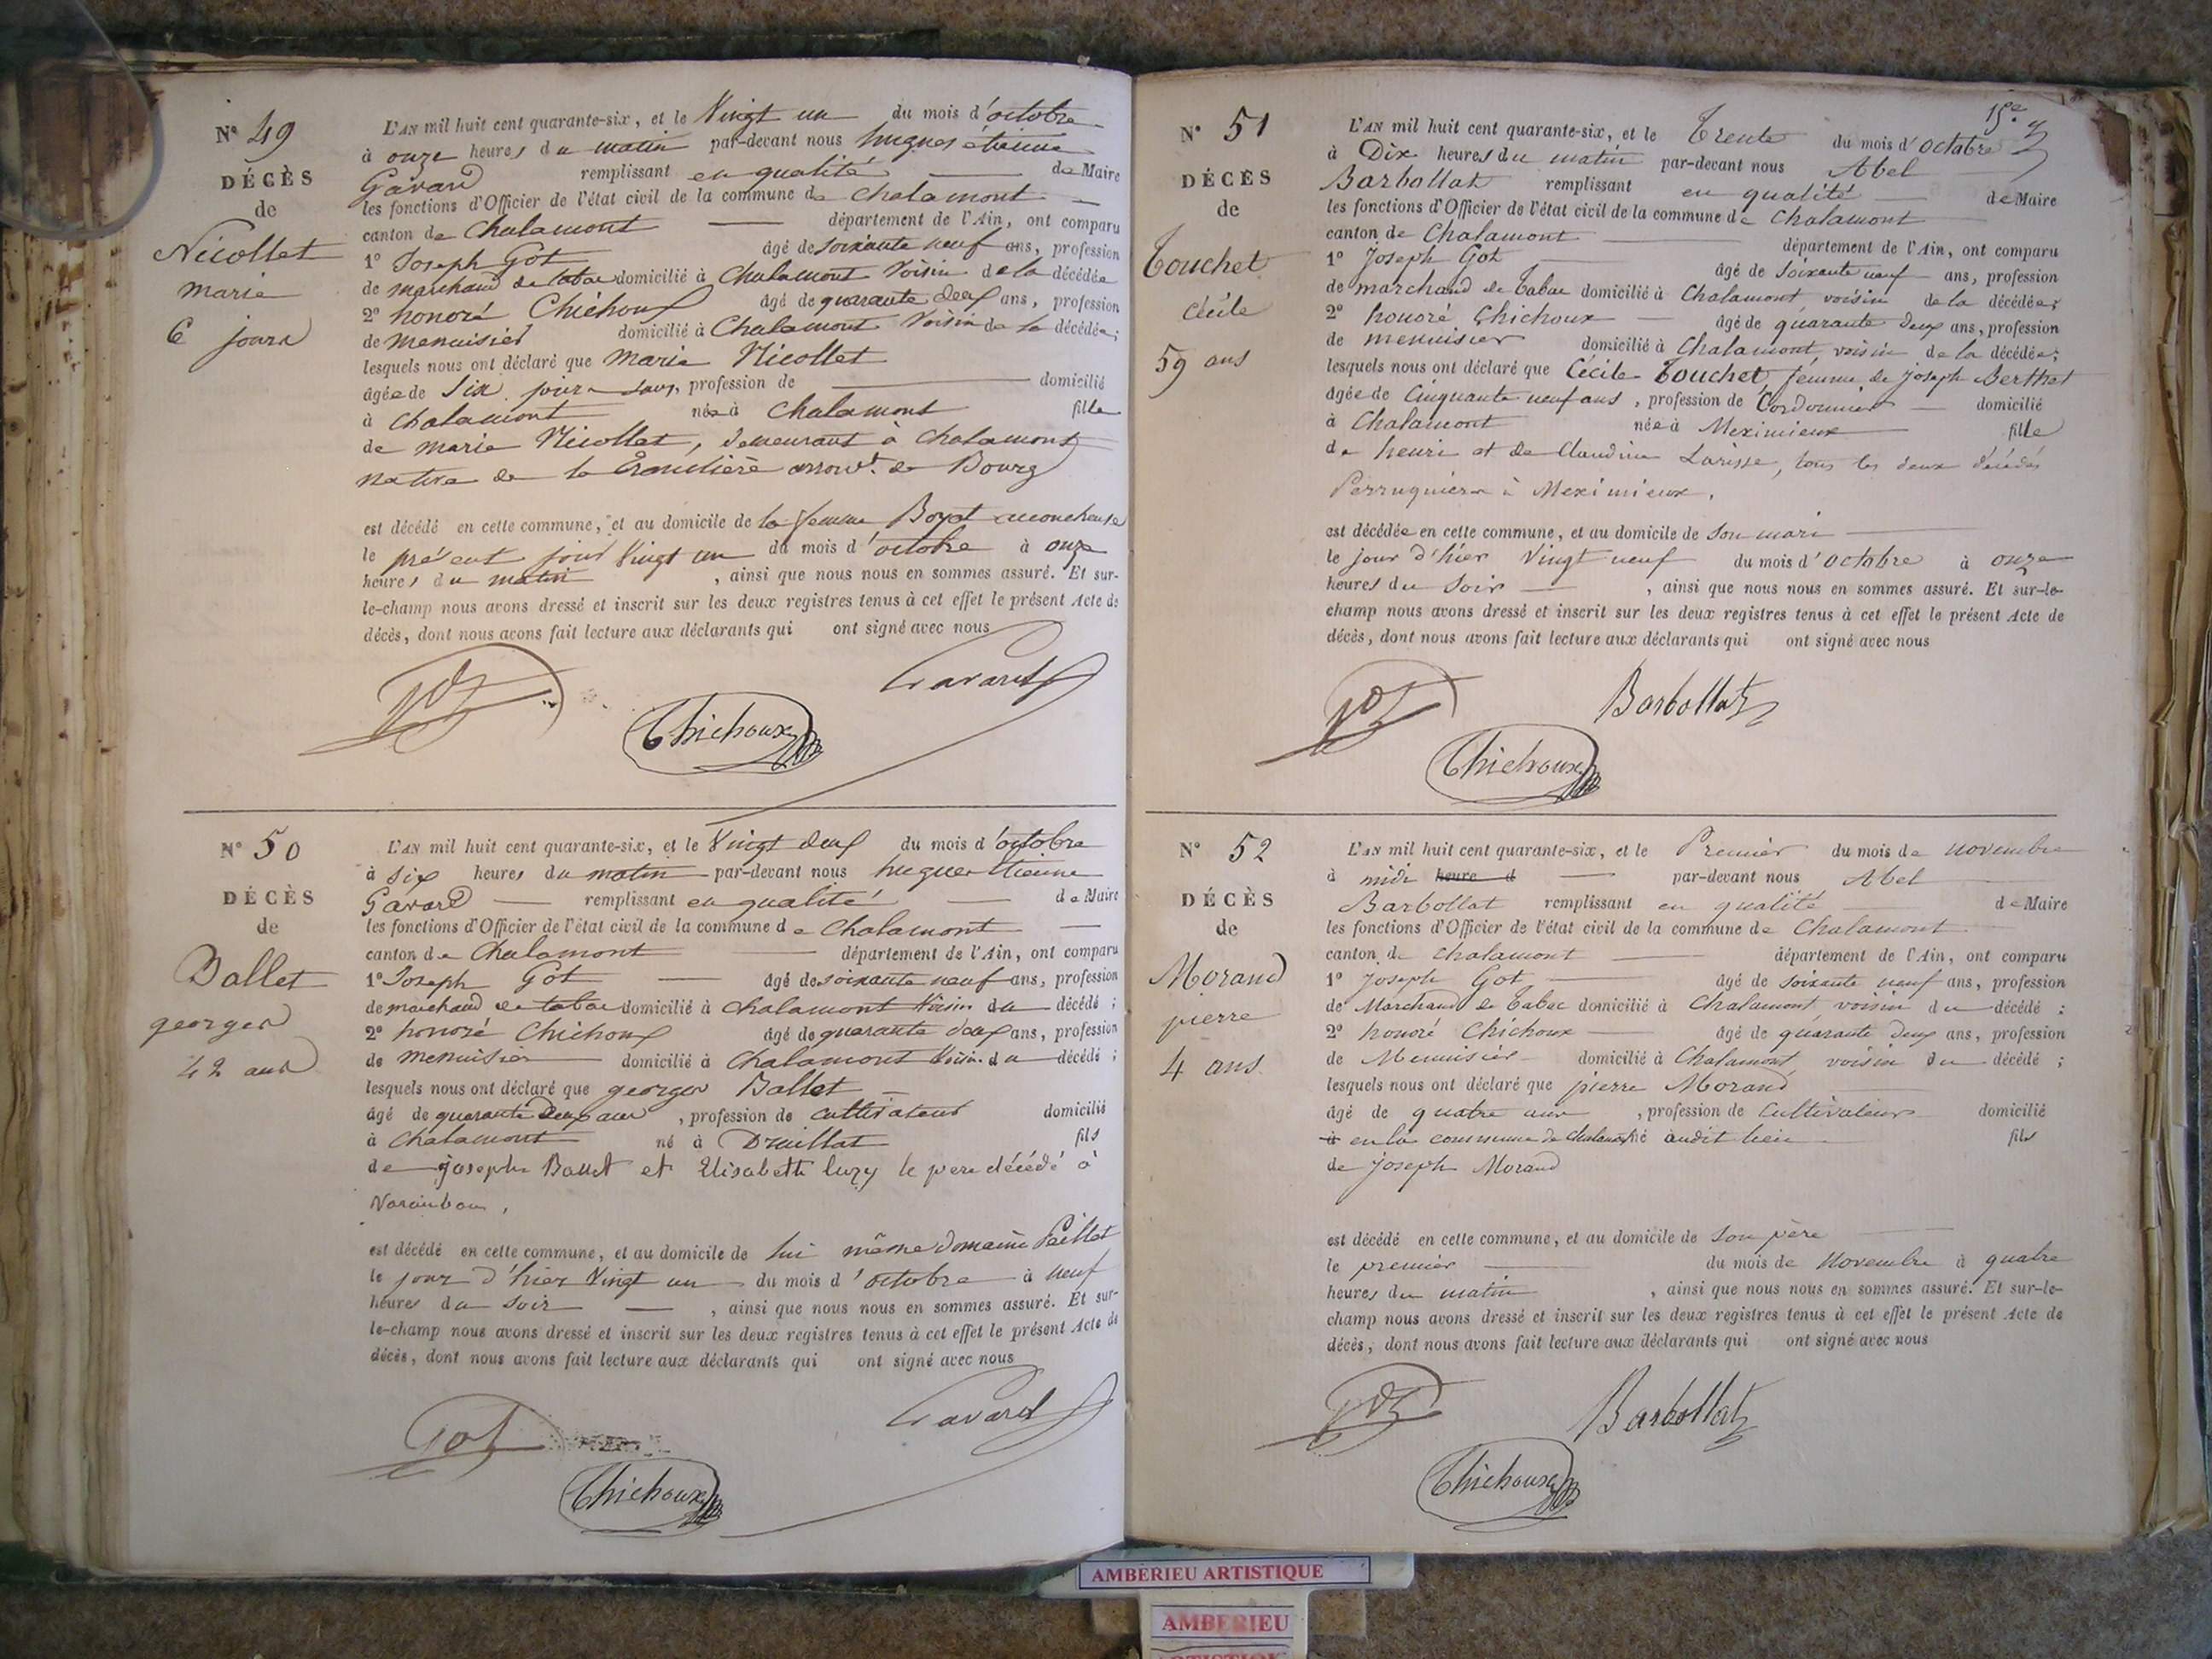 N° 49
DÉCÈS
de
Nicollet
marie
6 jours
L'AN mil huit cent quarante-six, et le Vingt un du mois d'octobre
à onze heures du matin par-devant nous hugues étienne
Gavard remplissant en qualité de Maire
les fonctions d'Officier de l'état civil de la commune de Chalamont
canton de Chalamont département de l'Ain, ont comparu
1° Joseph Got âgé de soixante neuf ans, profession
de marchand de tabac domicilié à Chalamont Voisin de la décédée
2° honoré Chichoux âgé de quarante deux ans, profession
de menuisier domicilié à Chalamont Voisin de la décédée;
lesquels nous ont déclaré que marie Nicollet
âgée de Six jours, profession de domicilié
à Chalamont née à Chalamont fille
de marie Nicollet, demeurant à Chalamont
native de la arrondt. de Bourg
est décédé en cette commune, et au domicile de la femme Boyat accoucheuse
le présent jour Vingt un du mois d'octobre à onze
heures du matin, ainsi que nous nous en sommes assuré. Et sur-
le-champ nous avons dressé et inscrit sur les deux registres tenus à cet effet le présent Acte de
décès, dont nous avons fait lecture aux déclarants qui ont signé avec nous
Got
Gavard
Chichoux
N° 50
DÉCÈS
de
Ballet
georges
42 ans
L'AN mil huit cent quarante-six, et le Vingt deux du mois d'octobre
à six heures du matin par-devant nous hugues étienne
Gavard remplissant en qualité de Maire
les fonctions d'Officier de l'état civil de la commune de Chalamont
canton de Chalamont département de l'Ain, ont comparu
1° Joseph Got âgé de soixante neuf ans, profession
de marchand de tabac domicilié à Chalamont Voisin du décédé;
2° honoré Chichoux âgé de quarante deux ans, profession
de menuisier domicilié à Chalamont Voisin du décédé;
lesquels nous ont déclaré que georges Ballet
âgé de quarante deux ans, profession de cultivateur domicilié
à Chalamont né à Druillat fils
de joseph Ballet et Elisabeth luzy le pere décédé à
Varambon,
est décédé en cette commune, et au domicile de lui même domaine Peillet
le jour d'hier Vingt un du mois d'octobre à neuf
heures du soir, ainsi que nous nous en sommes assuré. Et sur-
le-champ nous avons dressé et inscrit sur les deux registres tenus à cet effet le présent Acte de
décès, dont nous avons fait lecture aux déclarants qui ont signé avec nous
Got
Gavard
Chichoux
15e
N° 51
DÉCÈS
de
Touchet
Cécile
59 ans
L'AN mil huit cent quarante-six, et le Trente du mois d'octobre
à Dix heures du matin par-devant nous Abel
Barbollat remplissant en qualité de Maire
les fonctions d'Officier de l'état civil de la commune de Chalamont
canton de Chalamont département de l'Ain, ont comparu
1° Joseph Got âgé de soixante neuf ans, profession
de marchand de tabac domicilié à Chalamont voisin de la décédée;
2° honoré Chichoux âgé de quarante deux ans, profession
de menuisier domicilié à Chalamont, voisin de la décédée;
lesquels nous ont déclaré que Cécile Touchet femme de joseph Berthet
âgée de Cinquante neuf ans, profession de Cordonnier domicilié
à Chalamont née à Meximieux fille
de henri et de Claudine Larisse, tous les deux décédés
Perruquiers à Meximieux.
est décédée en cette commune, et au domicile de son mari
le jour d'hier Vingt neuf du mois d'octobre à onze
heures du soir, ainsi que nous nous en sommes assuré. Et sur-le-
champ nous avons dressé et inscrit sur les deux registres tenus à cet effet le présent Acte de
décès, dont nous avons fait lecture aux déclarants qui ont signé avec nous
Got
Barbollat
Chichoux
N° 52
DÉCÈS
de
Morand
pierre
4 ans
L'AN mil huit cent quarante-six, et le Premier du mois de novembre
à midi heure d par-devant nous Abel
Barbollat remplissant en qualité de Maire
les fonctions d'Officier de l'état civil de la commune de Chalamont
canton de Chalamont département de l'Ain, ont comparu
1° Joseph Got âgé de soixante neuf ans, profession
de Marchand de Tabac domicilié à Chalamont, voisin du décédé;
2° honoré Chichoux âgé de quarante deux ans, profession
de Menuisier domicilié à Chalamont, voisin du décédé;
lesquels nous ont déclaré que pierre Morand
âgé de quatre ans, profession de Cultivateur domicilié
à en la commune de Chalamont né audit lieu fils
de joseph Morand
est décédé en cette commune, et au domicile de son père
le premier du mois de Novembre à quatre
heures du matin, ainsi que nous nous en sommes assuré. Et sur-le-
champ nous avons dressé et inscrit sur les deux registres tenus à cet effet le présent Acte de
décès, dont nous avons fait lecture aux déclarants qui ont signé avec nous
Got
Barbollat
Chichoux
AMBÉRIEU ARTISTIQUE
AMBERIEU
ARTISTIQUE